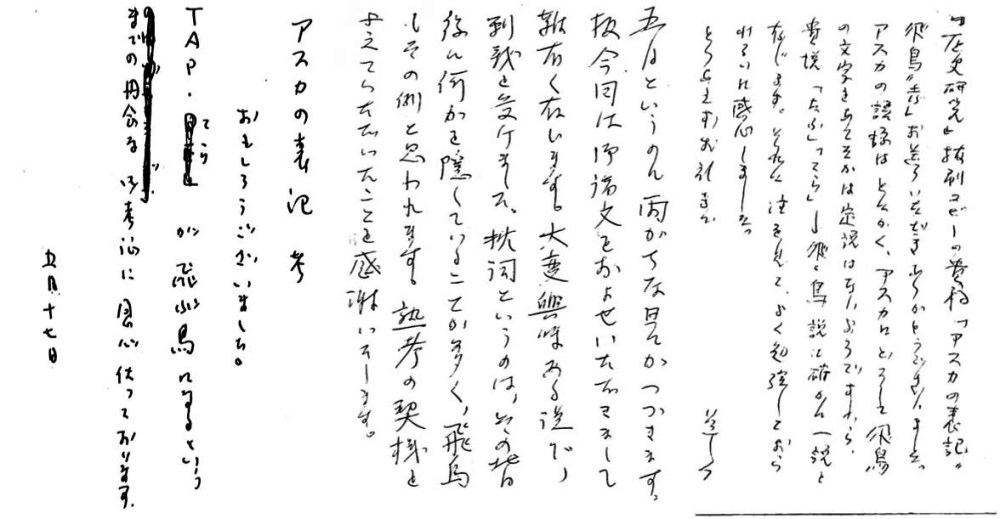 『歴史研究』抜刷コピーの貴稿「アスカの表記"
飛鳥"考」お送りいただきありがとうございました。
アスカの語源はともかく、アスカになぜ飛鳥
の文字をあてたかは定説はないようですから、
貴説 は確かに一説と
存じます。 注を見て、よく勉強しておら
れるのに感心しました。
とりあえずお礼まで
草々
五月というのに雨がちな日がつづきます。
扨今回は御論文をおよせいただきまして
難有く存じます。大変興味ある説で、
刺戟を受けました。枕詞というのは、その背
後に何かを隠していることが多く、飛鳥
もその例と思われます。熟考の契機を
与えていただいたことを感謝いたします。
アスカの表記 考
おもしろうございました。
TAP・ てら が 飛ぶ鳥になるという
までの 御考論に感心 仕っております。
五月十七日